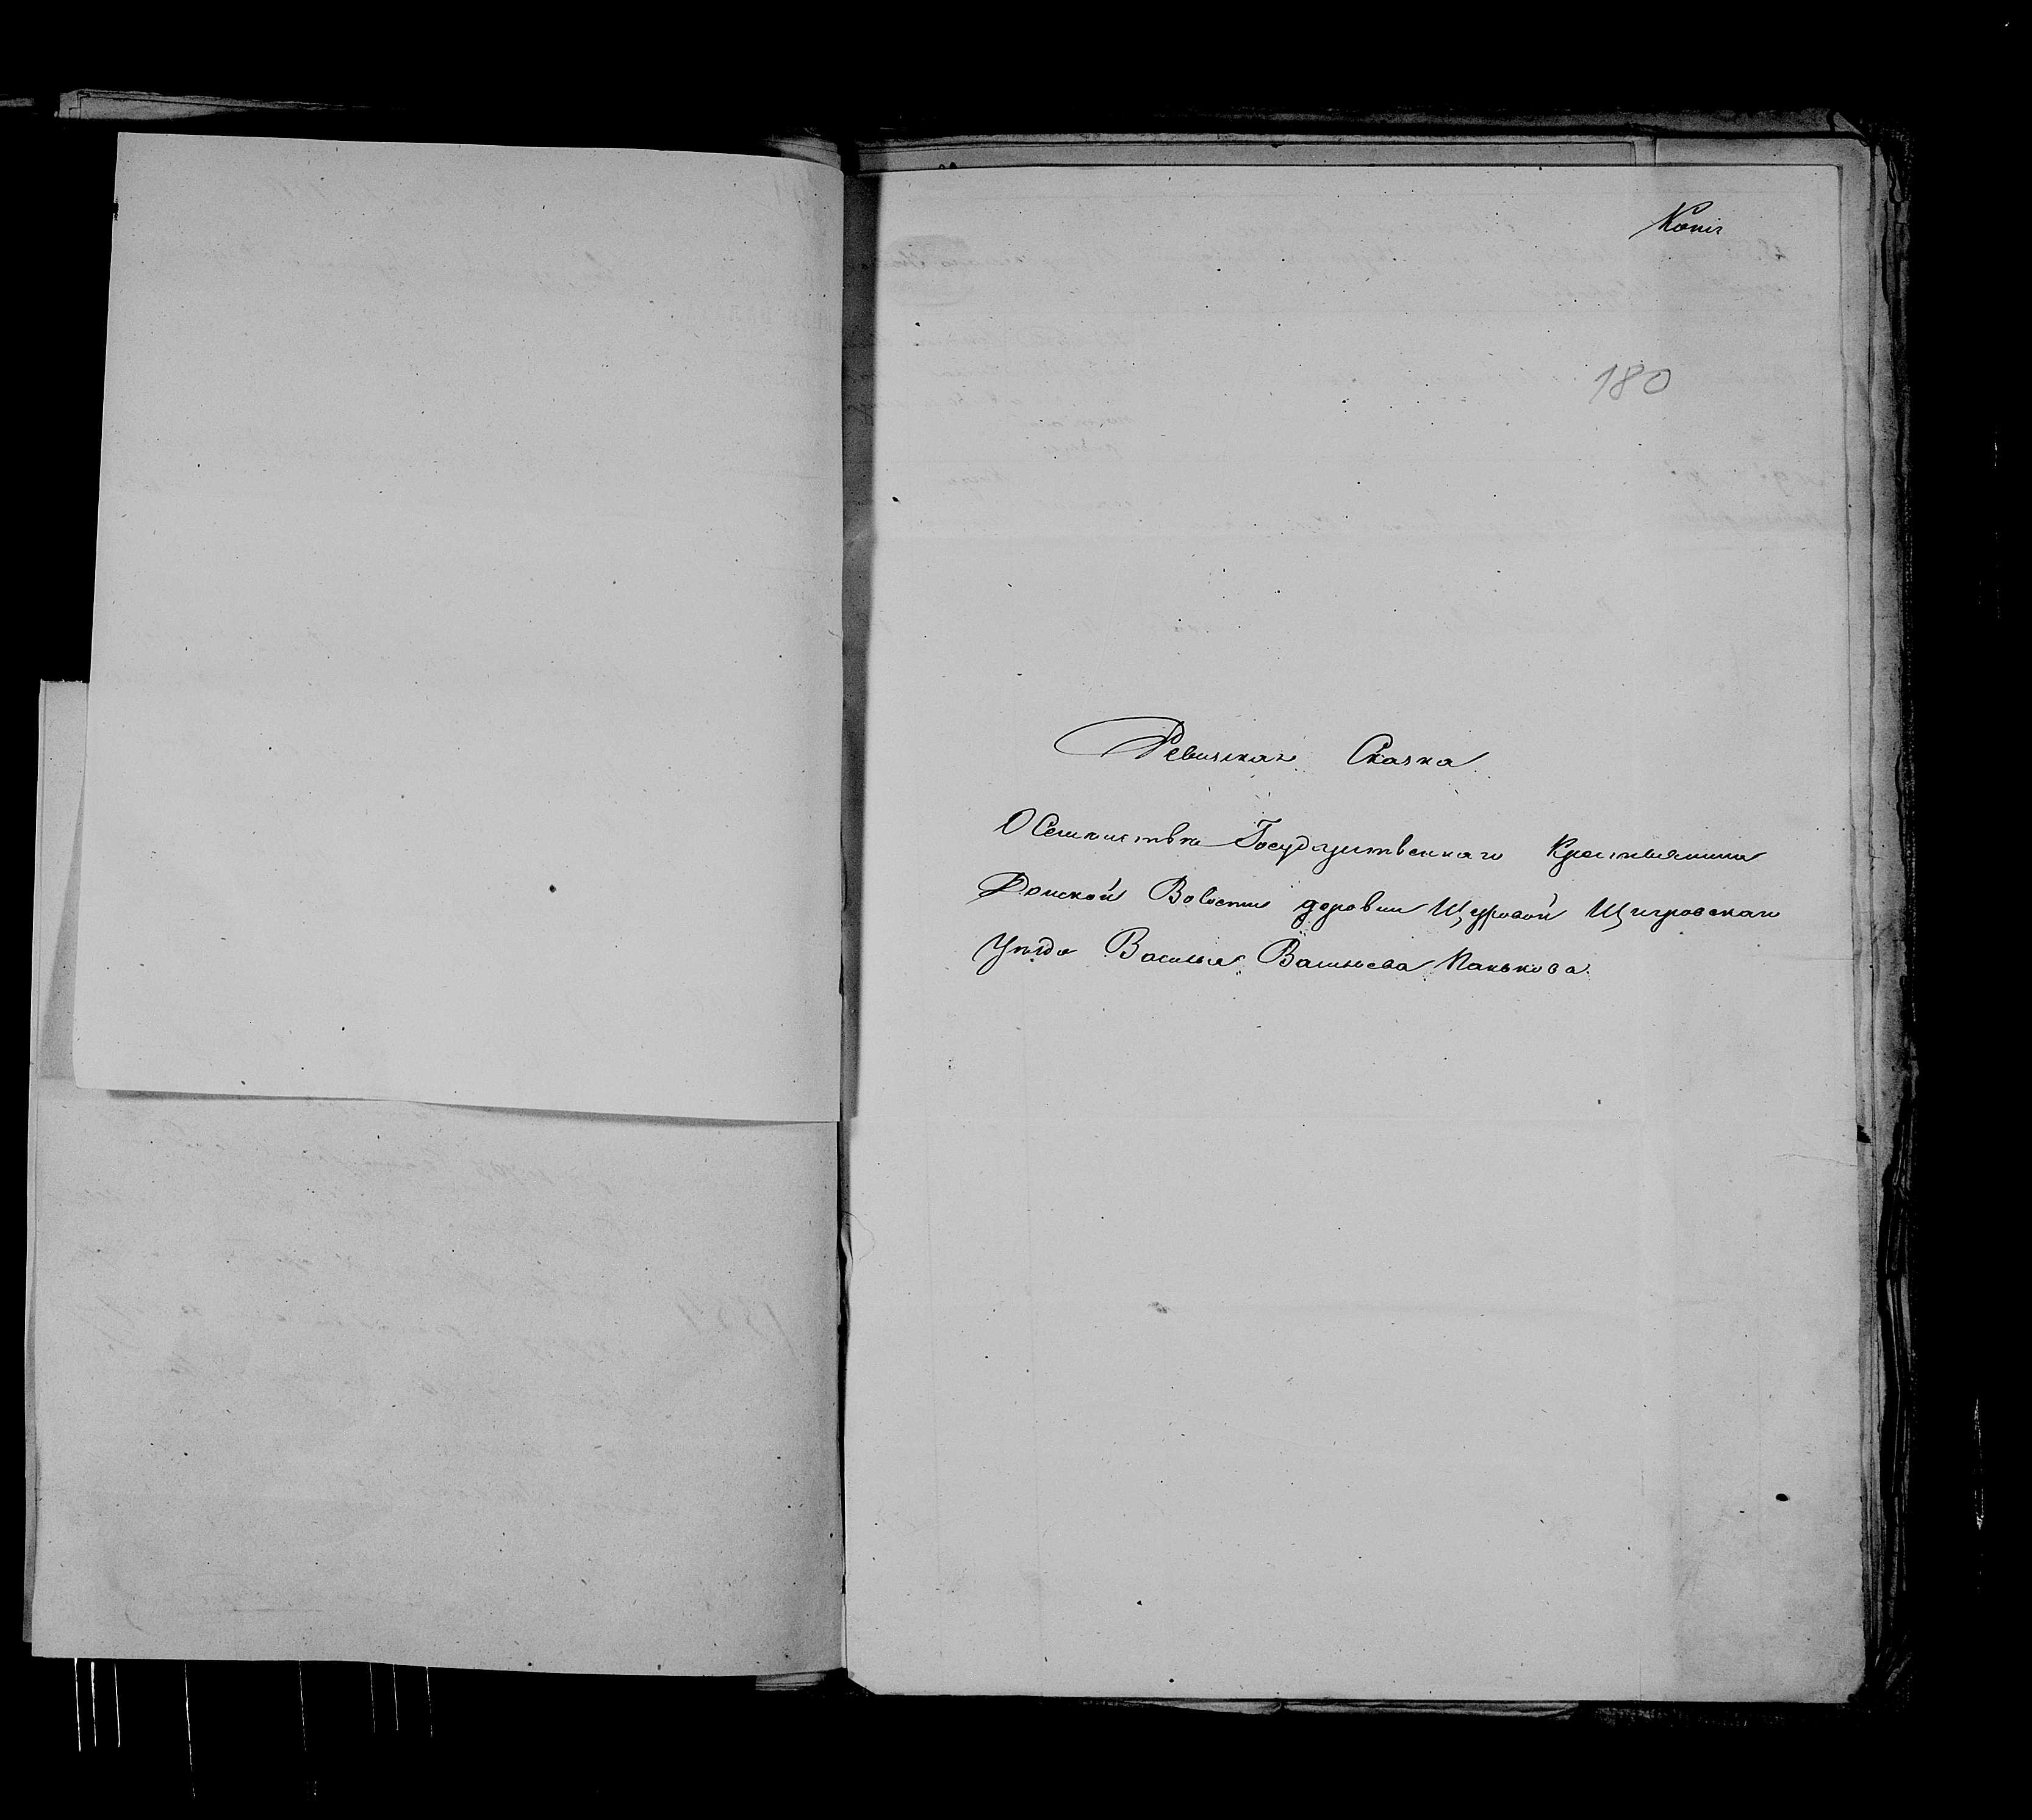 Копія
180
Ревизская Сказка
О Семействѣ Государственнаго Крестьянина
Донской Волости деревни Щуровой Щигровскаго
Уѣзда Василья Васильева Панькова